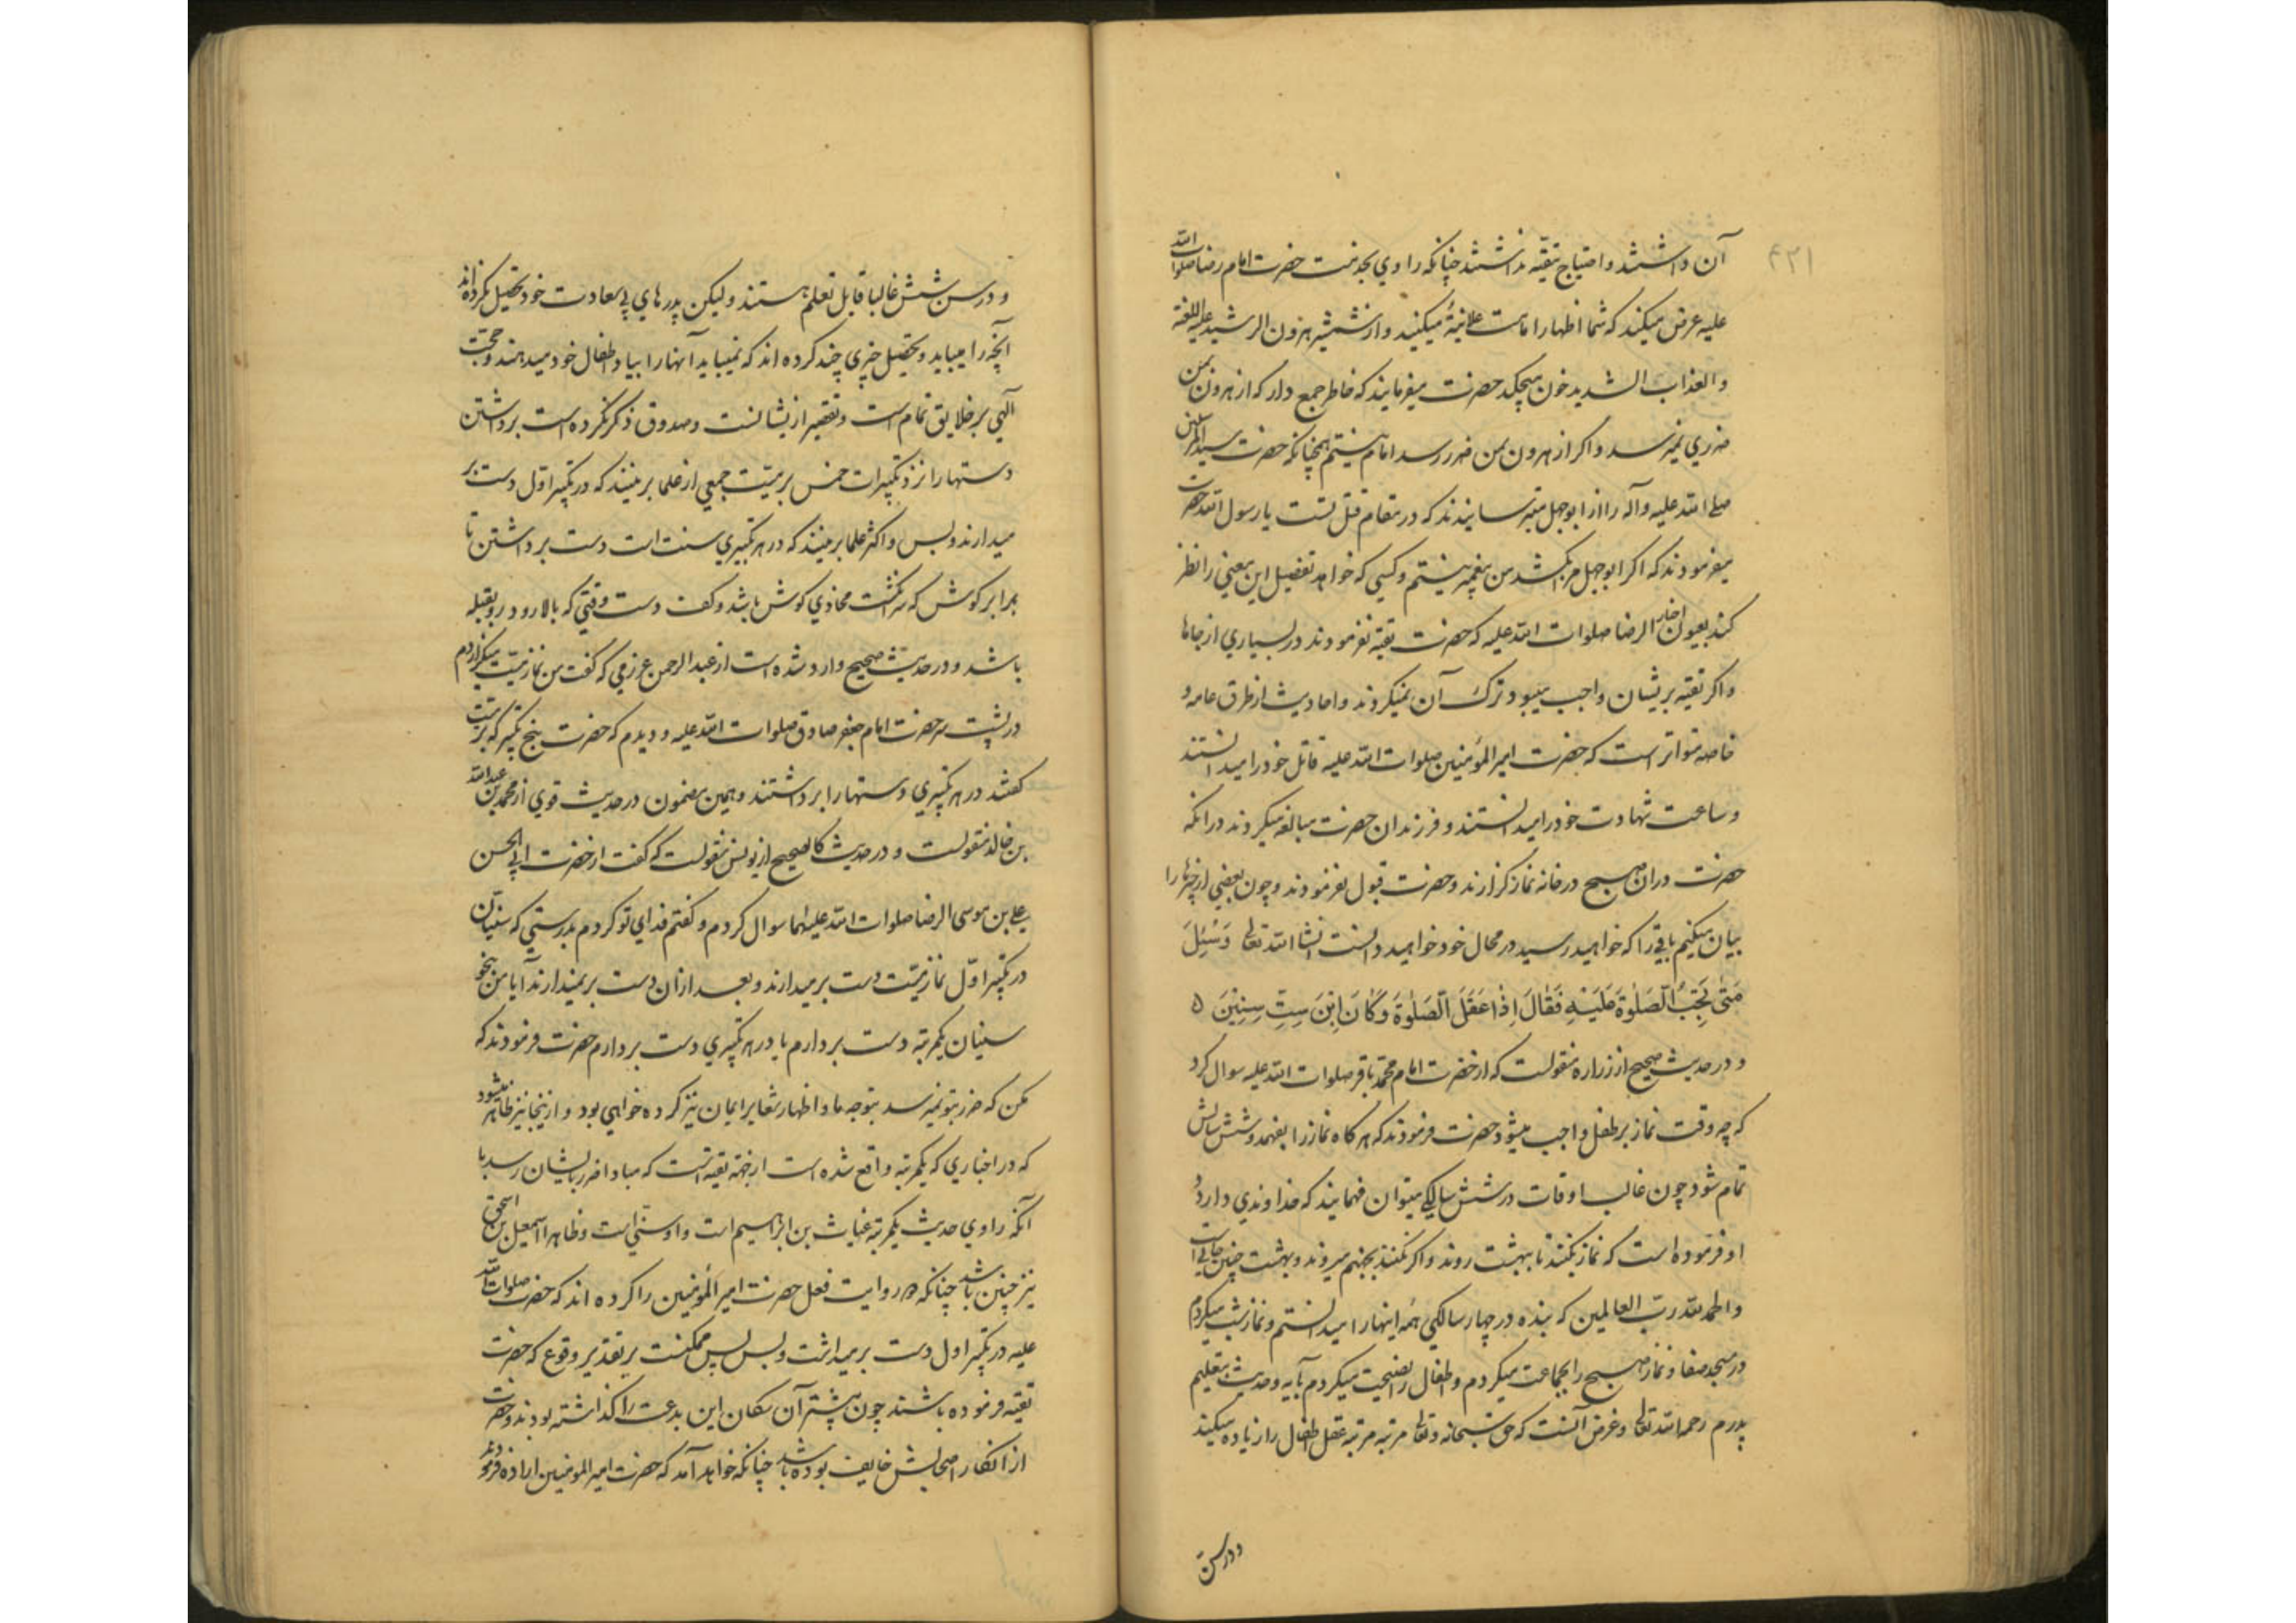 ۴۳۱
آن داشتند و احتیاج بتقیه نداشتند چنانکه راوي بخدمت حضرت امام رضا صلوات الله
علیه عرض میکند که شما اظهار امامت علانیةً میکنید و از شمشیر هرون الرشید علیه اللعنه
و العذاب الشدید خون میچکد حضرت میفرمایند که خاطر جمع دار که از هرون بمن
ضرري نمیرسد و اکر از هرون بمن ضرر رسد امام نیستم همچنانکه حضرت سید المرسلین
صلی الله علیه وآله را از ابوجهل میترسانیدند که در مقام قتل تست یا رسول الله حضرت
میفرمودند که اکر ابوجهل مرا بکشد من پیغمبر نیستم و کسي که خواهد تفصیل این معني را نظر
کند بعیون اخبار الرضا صلوات الله علیه که حضرت تقیه نفرمودند در بسیاري از جاها
و اکر تقیه بریشان واجب میبود ترک آن نمیکردند و احادیث از طرق عامه و
خاصه متواتر است که حضرت امیر المؤمنین صلوات الله علیه قاتل خود را میدانستند
و ساعت شهادت خود را میدانستند و فرزندان حضرت مبالغه میکردند در آنکه
حضرت در آن صبح در خانه نماز کزارند و حضرت قبول نفرمودند و چون بعضي از خبرها را
بیان میکنیم باقي را که خواهید رسید در محال خود خواهید دانست انشا الله تعالی وَسُئِلَ
مَتٰی تَجِبُ الصَّلٰوةُ عَلَیْهِ فَقٰالَ اِذٰا عَقَلَ الصَّلٰوةَ وَکٰانَ اِبْنَ سِتِّ سِنِینَ ۵
و در حدیث صحیح از زراره منقولست که از حضرت امام محمد باقر صلوات الله علیه سوال کرد
که چه وقت نماز بر طفل واجب میشود حضرت فرمودند که هر کاه نماز را بفهمد و شش سالش
تمام شود چون غالب اوقات در شش سالکي میتوان فهمانید که خداوندي دارد و
او فرموده است که نماز بکنند تا ببهشت روند و اکر نکنند بجهنم میروند و بهشت چنین جایي است
و الحمد لله رب العالمین که بنده در چهار سالکي همه اینها را میدانستم و نماز شب میکردم
در مسجد صفا و نماز صبح را بجماعت میکردم و اطفال را نصیحت میکردم بآیه و حدیث بتعلیم
پدرم رحمه الله تعالی و غرض آنست که حق سبحانه و تعالی مرتبه مرتبه عقل اطفال را زیاده میکند
و در سن
و در سن شش غالبا قابل تعلم هستند و لیکن پدرهاي بي سعادت خود تحصیل نکرده اند
آنچه را میباید و تحصیل چیزي چند کرده اند که نمیباید آنها را بیاد اطفال خود میدهند و حجت
الهي بر خلایق تمام است و تقصیر از یشانست و صدوق ذکر نکرده است برداشتن
دستها را نزد تکبیرات خمس بر میت جمعي از علما برینند که در تکبیر اول دست بر
میدارند و بس و اکثر علما برینند که در هر تکبیري سنت است دست برداشتن تا
برابر کوش که سر انکشت محاذي کوش باشد و کف دست وقتي که بالا رود رو بقبله
باشد و در حدیث صحیح وارد شده است از عبد الرحمن عرزمي که کفت من نماز میت میکزاردم
در پشت سر حضرت امام جعفر صادق صلوات الله علیه و دیدم که حضرت پنج تکبیر که بر میت
کفتند در هر تکبیري دستها را برداشتند و همین مضمون در حدیث قوي از محمد بن عبد الله
بن خالد منقولست و در حدیث کالصحیح از یونس منقولست که کفت از حضرت ابي الحسن
علي بن موسی الرضا صلوات الله علیهما سوال کردم و کفتم فداي تو کردم بدرستي که سنیان
در تکبیر اول نماز میت دست بر میدارند و بعد از ان دست بر نمیدارند آیا من نیز بنحو
سنیان یکمرتبه دست بردارم یا در هر تکبیري دست بردارم حضرت فرمودند که
مکن که ضرر بتو نمیرسد بتوجه ما و اظهار شعایر ایمان نیز کرده خواهي بود و از ینجا نیز ظاهر میشود
که در اخباري که یکمرتبه واقع شده است از جهة تقیه است که مبادا ضرر بایشان رسد یا
آنکه راوي حدیث یکمرتبه غیاث بن ابراهیم است و او سني است و ظاهرا اسمعیل بن اسحق
نیز چنین باشد چنانکه هر دو روایت فعل حضرت امیر المؤمنین را کرده اند که حضرت صلوات الله
علیه در تکبیر اول دست بر میداشت و بس پس ممکنست بر تقدیر وقوع که حضرت
تقیه فرموده باشند چون پیشتر آن سکان این بدعت را کذاشته بودند و حضرت
از انکار اصحابش خایف بوده باشد چنانکه خواهد آمد که حضرت امیر المومنین اراده فرمودند